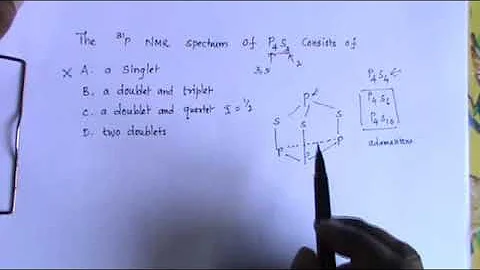 The ³¹P NMR spectrum of P₄S₃ consists of
3,5 2
X A. a singlet
B. a doublet and triplet
C. a doublet and quartet I = ½
D. two doublets
P
S S S
P P
P₄S₄
P₄S₆
P₄S₁₀
adamantane